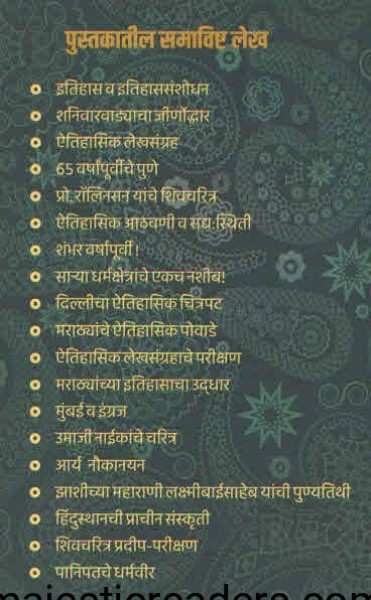 पुस्तकातील समाविष्ट लेख
इतिहास व इतिहाससंशोधन
शनिवारवाड्याचा जीर्णोद्धार
ऐतिहासिक लेखसंग्रह
65 वर्षांपूर्वीचे पुणे
प्रो. रॉलिनसन यांचे शिवचरित्र
ऐतिहासिक आठवणी व सद्य:स्थिती
शंभर वर्षांपूर्वी !
साऱ्या धर्मक्षेत्रांचे एकच नशीब!
दिल्लीचा ऐतिहासिक चित्रपट
मराठ्यांचे ऐतिहासिक पोवाडे
ऐतिहासिक लेखसंग्रहाचे परीक्षण
मराठ्यांच्या इतिहासाचा उद्धार
मुंबई व इंग्रज
उमाजी नाईकांचे चरित्र
आर्य नौकानयन
झाशीच्या महाराणी लक्ष्मीबाईसाहेब यांची पुण्यतिथी
हिंदुस्थानची प्राचीन संस्कृती
शिवचरित्र प्रदीप-परीक्षण
पानिपतचे धर्मवीर
majesticreaders.com